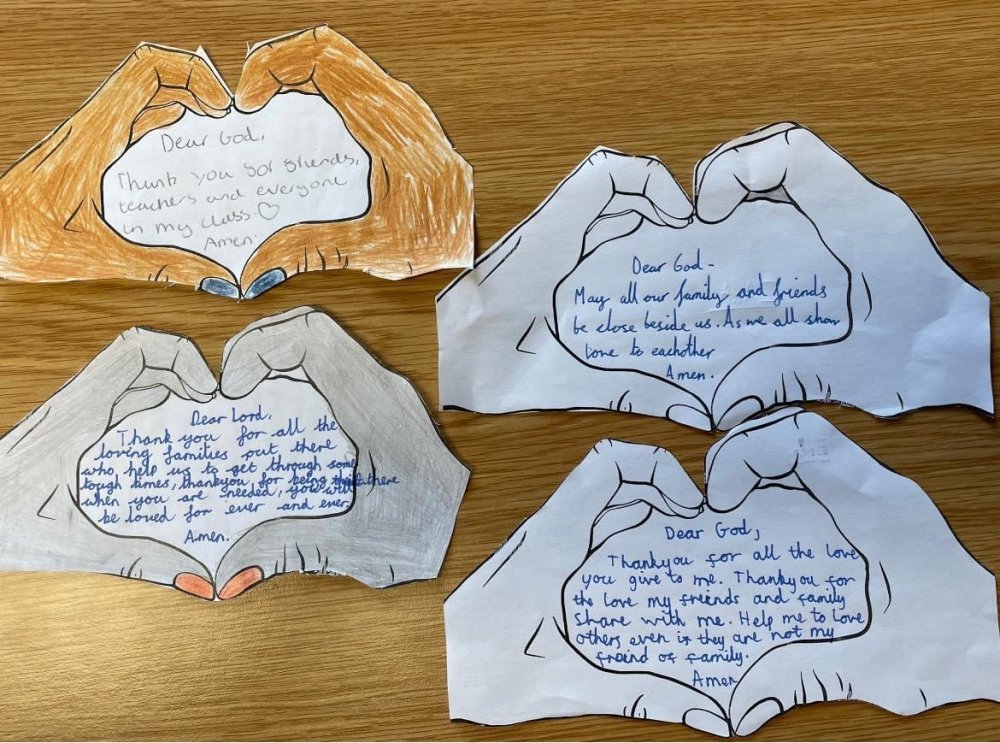 Dear God,
Thank you for friends,
teachers and everyone
in my class.♡
Amen.
Dear God-
May all our family and friends
be close beside us. As we all show
love to eachother
Amen.
Dear Lord,
Thank you for all the
loving families out there
who, help us to get through some
tough times, thankyou for being there
when you are needed, you will
be loved for ever and ever.
Amen.
Dear God,
Thankyou for all the love
you give to me. Thankyou for
the love my freinds and family
share with me. Help me to love
others even if they are not my
freind of family.
Amen